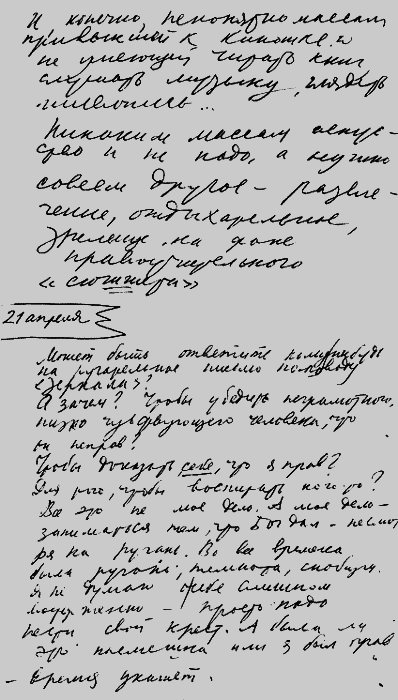 И, конечно, непонятно массам,
привыкшей к киношке и
не умеющей читать книг
слушать музыку, глядеть
живопись...
Никаким массам искус-
ство и не надо, а нужно
совсем другое — развле-
чение, отдыхательное,
зрелище, на фоне
нравоучительного
«сюжета»
21 апреля
Может быть ответить кому-нибудь
на ругательное письмо по поводу
«Зеркала»?
А зачем? Чтобы убедить неграмотного,
низко чувствующего человека, что
он неправ?
Чтобы доказать себе, что я прав?
Для того, чтобы воспитать кого-то?
Все это не мое дело. А мое дело —
заниматься тем, что Бог дал — несмот
ря на ругань. Во все времена
была ругань, темнота, снобизм.
Я не думаю о себе слишком
— просто надо
нести свой крест. А была ли
это насмешка или я был прав
— время укажет.